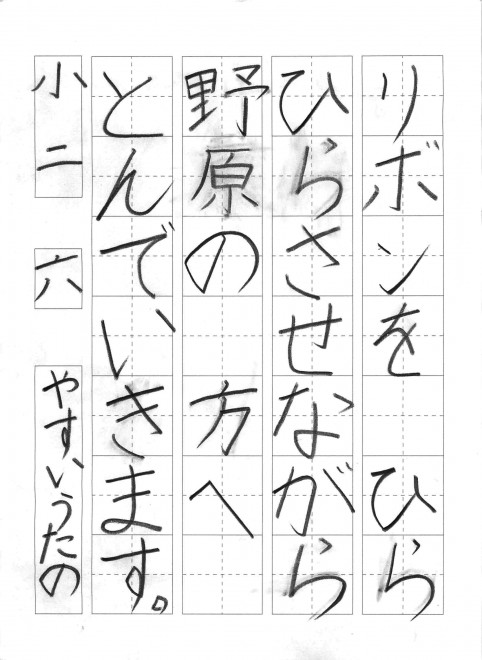 リボンを ひら
ひらさせながら
野原の 方へ
とんでいきます。
小二 六 やすいうたの